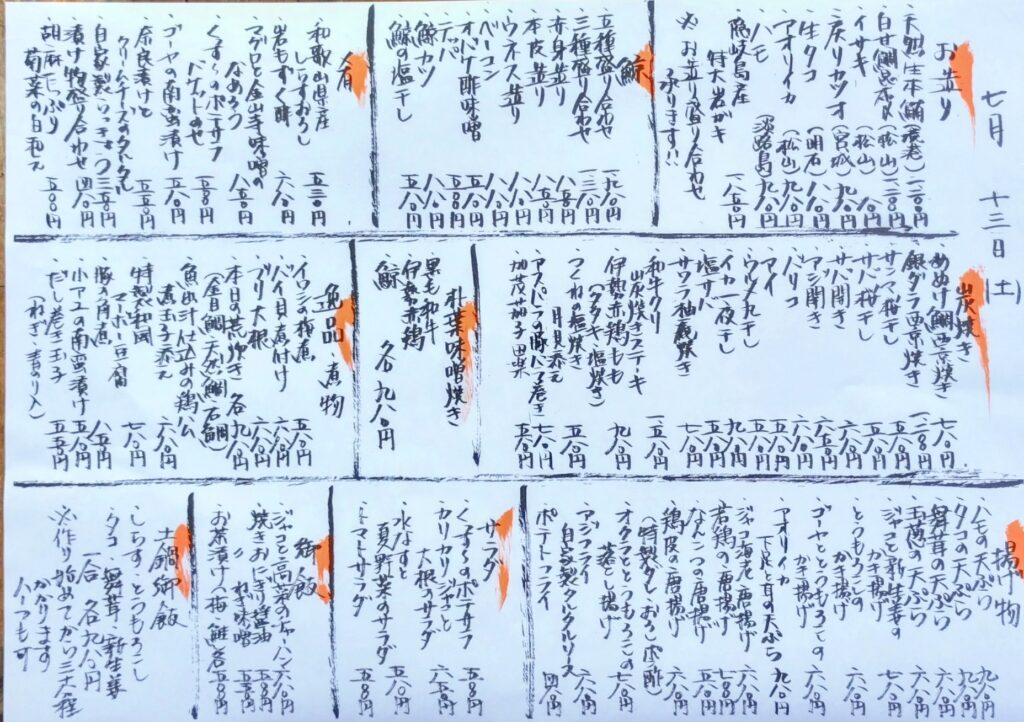 七月 十三日(土)
お造り
・天然生本鮪
・白甘鯛昆布〆(松山)
・イサキ(松山)
・戻りカツオ(宮城)九八〇円
・生タコ(明石)八八〇円
・アオリイカ(松山)九八〇円
・ハモ(淡路島)九八〇円
・隠岐島産
特大岩ガキ
※お造り盛り合わせ
承ります!!
鯨
・五種盛り合わせ
・三種盛り合わせ
・赤身造り
・本皮造り
・ウネス造り
・ベーコン
・オバケ酢味噌
・テッパ
・鯨カツ
・鯨の塩干し
肴
・和歌山県産
しらすおろし 五三〇円
・岩もずく酢 六八〇円
・マグロと金山寺味噌の
なめろう 八五〇円
・くずし のポテサラ
バゲットのせ 五八〇円
・ゴーヤの南蛮漬け 五八〇円
・奈良漬けと
クリームチーズのタルタル 五五〇円
・自家製らっきょう 三五〇円
・漬け物盛り合わせ 四八〇円
・胡麻たっぷり
菊菜の白和え 五八〇円
炭焼き
・めぬけ鯛西京焼き
・銀ダラ西京焼き
・サンマ桜干し
・サバ桜干し
・サバ開き
・アジ開き
・バリコ
・アイ
・ウルメ丸干し
・イカ一夜干し
・塩サバ
・サワラ柚庵焼き 七八〇円
・和牛クリ
山炭焼きステーキ
・伊勢赤鶏もも
(タタキ・塩焼き) 九八〇円
・つくねの塩焼き
月見添え 五八〇円
・アスパラの豚バラ巻き 七八〇円
・加茂茄子田楽 五八〇円
朴葉味噌焼き
・黒毛和牛
・伊勢赤鶏
・鯨
各 九八〇円
逸品・煮物
・イワシの梅煮 五八〇円
・バイ貝煮付け 六八〇円
・ブリ大根 六八〇円
・本日の荒炊き 各九八〇円
(金目鯛・天然鯛・石鯛)
・魚出汁仕込みの鶏ハム
煮玉子添え 六八〇円
・特製和風
マーボー豆腐 七八〇円
・豚角煮 八五〇円
・小アユの南蛮漬け 五八〇円
・だし巻き玉子 五五〇円
(ねぎ・青のり・〆)
揚げ物
・ハモの天ぷら 九八〇円
・タコの天ぷら 九八〇円
・舞茸の天ぷら 六八〇円
・玉葱の天ぷら 六八〇円
・ジャコと新生姜の
かき揚げ 七八〇円
・とうもろこしの
かき揚げ 六八〇円
・ゴーヤととうもろこしの
かき揚げ 六八〇円
・アオリイカ
下足と耳の天ぷら 九八〇円
・ジャコ海老唐揚げ 六八〇円
・若鶏の唐揚げ 七八〇円
・なんこつの唐揚げ 五八〇円
・鶏皮の唐揚げ 六八〇円
(特製タレ・おろしポン酢)
・オクラととうもろこしの
落とし揚げ 七八〇円
・アジフライ
自家製タルタルソース 六八〇円
・ポテトフライ 四八〇円
サラダ
・くずし のポテサラ 五八〇円
・カリカリジャコと
大根のサラダ 六五〇円
・水なすと
夏野菜のサラダ 五八〇円
・トマトサラダ 五八〇円
御飯
・ジャコと高菜のチャーハン 六八〇円
・焼きおにぎり醤油 五八〇円
・〃 ねぎ味噌 五八〇円
・お茶漬け(梅・鮭)各五八〇円
土鍋御飯
・しらす・とうもろこし
・タコ・舞茸・新生姜
一合 各九八〇円
※作り始めてから三十分程
かかります
ハーフも可